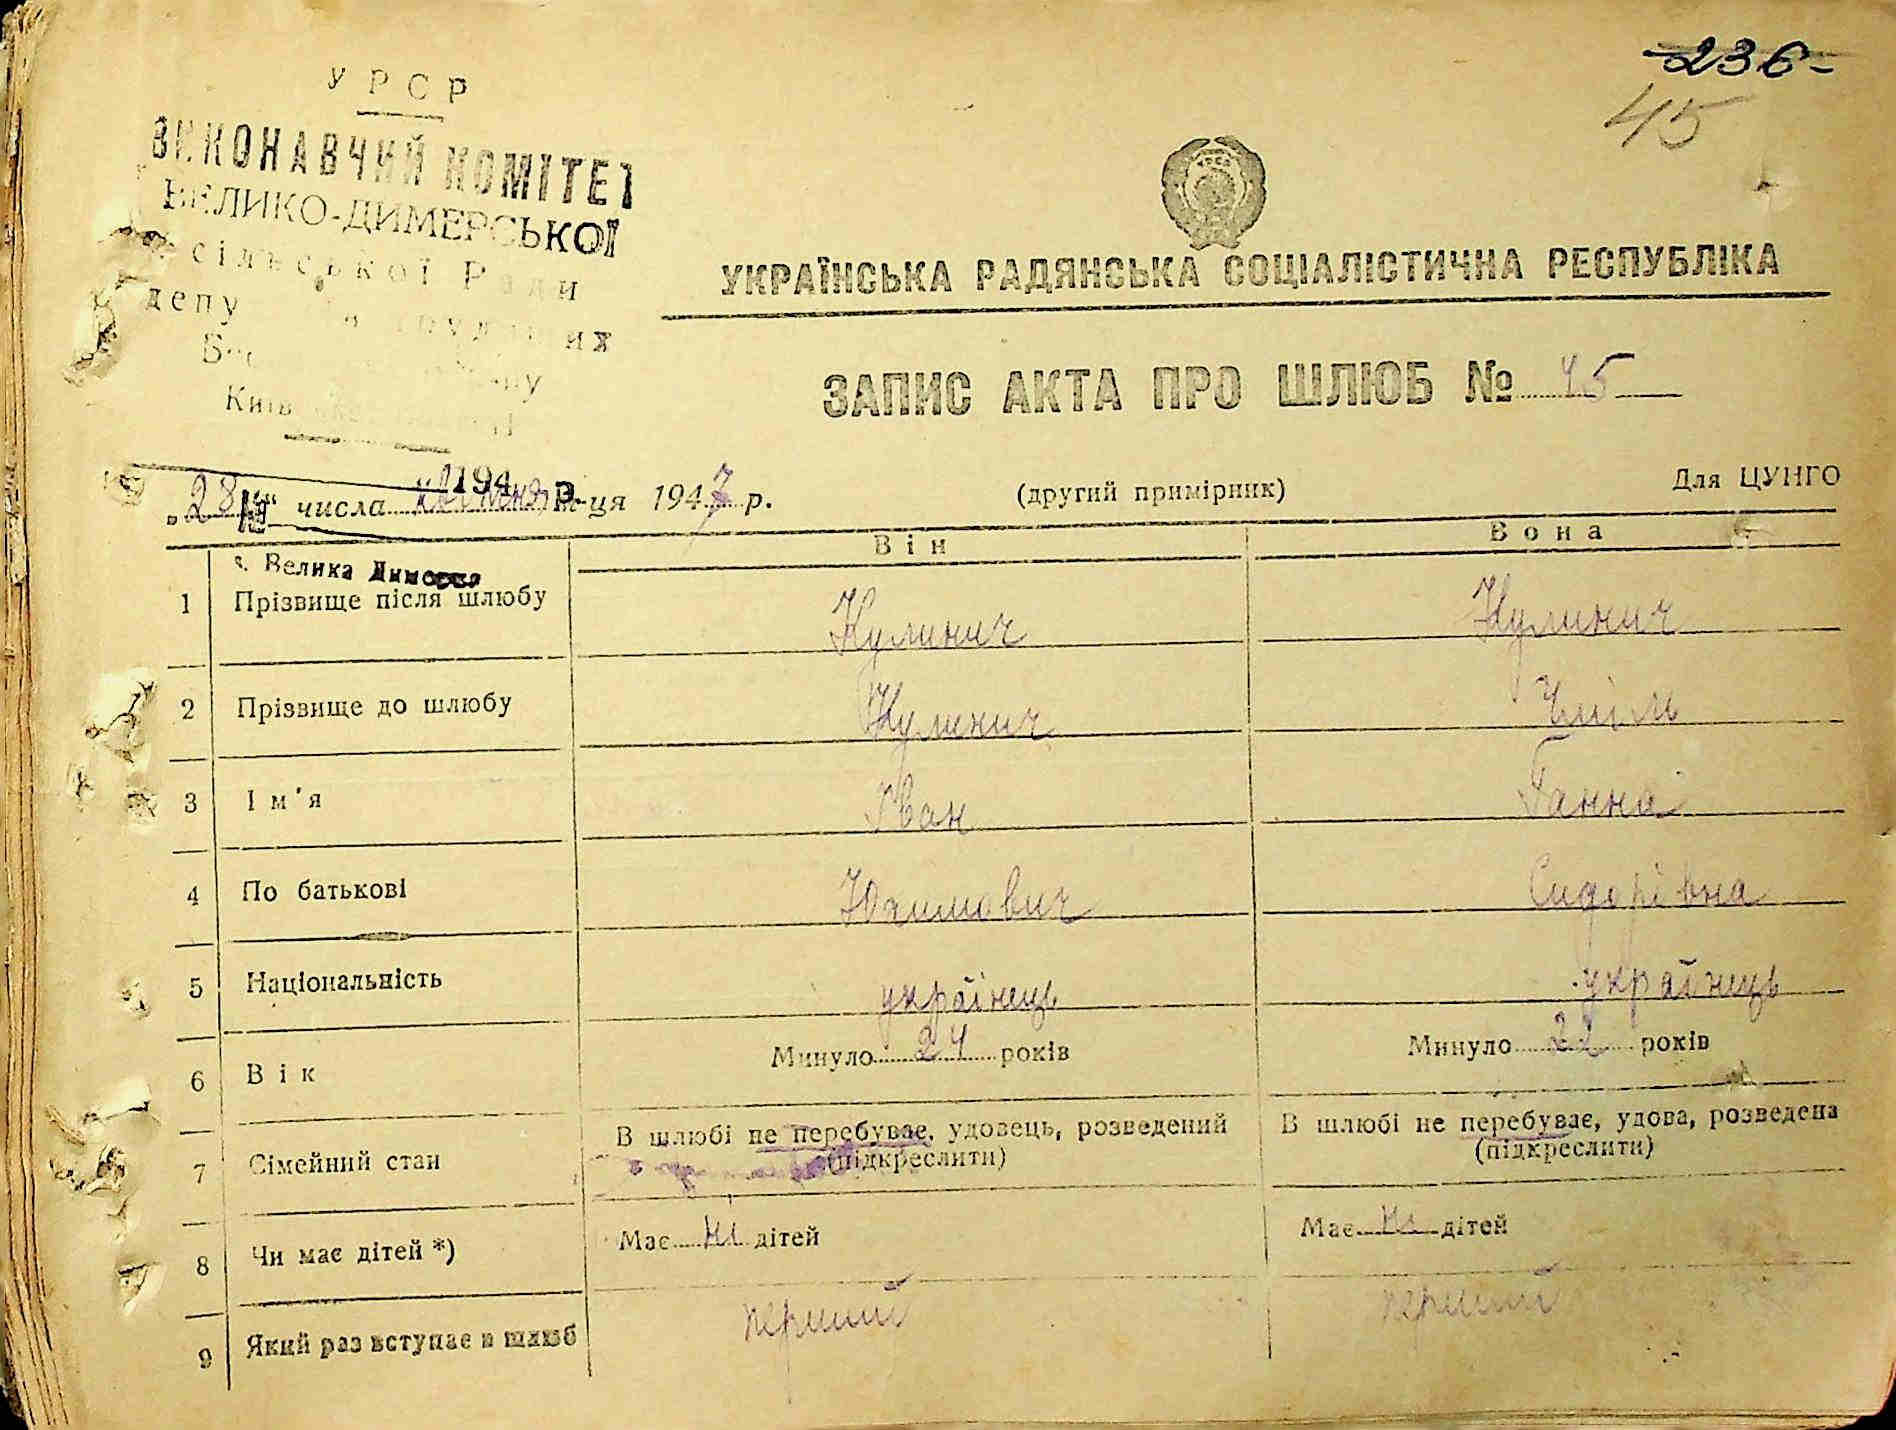 236-
45
УРСР
ВИКОНАВЧИЙ КОМІТЕТ
ВЕЛИКО-ДИМЕРСЬКОЇ
сільської Ради
депу трудящих
Київ
194 Р.
№
с. Велика Димерка
УКРАЇНСЬКА РАДЯНСЬКА СОЦІАЛІСТИЧНА РЕСПУБЛІКА
ЗАПИС АКТА ПРО ШЛЮБ № 45
„28“ числа м-ця 1947 р.
(другий примірник)
Для ЦУНГО
Він Вона
1 Прізвище після шлюбу Кулинич Кулинич
2 Прізвище до шлюбу Кулинич
3 Ім'я Іван Ганна
4 По батькові Юхимович Сидорівна
5 Національність українець українець
6 Вік Минуло 24 років Минуло 22 років
7 Сімейний стан В шлюбі не перебуває, удовець, розведений (підкреслити) В шлюбі не перебуває, удова, розведена (підкреслити)
8 Чи має дітей *) Має ні дітей Має ні дітей
9 Який раз вступає в шлюб перший перший